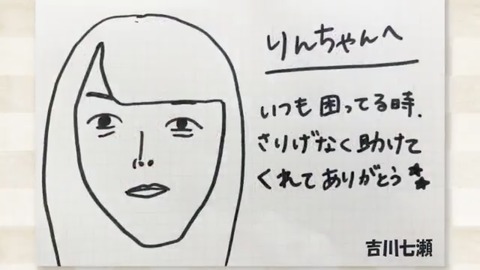 りんちゃんへ
いつも困ってる時、
さりげなく助けて
くれてありがとう★★
吉川七瀬